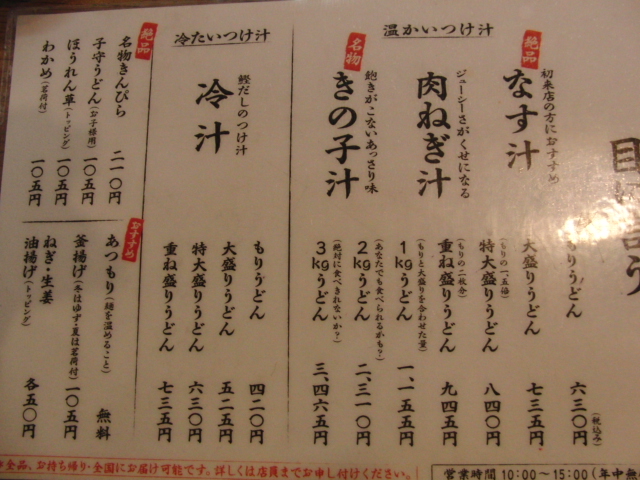 温かいつけ汁
初来店の方におすすめ
絶品
なす汁
ジューシーさがくせになる
肉ねぎ汁
飽きがこないあっさり味
名物
きの子汁
もりうどん 六三〇円(税込み)
大盛りうどん 七三五円
(もりの一、五倍)
特大盛りうどん 八四〇円
(もりの二枚分)
重ね盛りうどん 九四五円
(もりと大盛りを合わせた量)
1kgうどん 一、一五五円
(あなたでも食べられるかも?)
2kgうどん 二、三一〇円
(絶対に食べきれないか?)
3kgうどん 三、四六五円
冷たいつけ汁
鰹だしのつけ汁
冷汁
もりうどん 四二〇円
大盛りうどん 五二五円
特大盛りうどん 六三〇円
重ね盛りうどん 七三五円
絶品
名物きんぴら 二一〇円
子守うどん(お子様用) 一〇五円
ほうれん草(トッピング) 一〇五円
わかめ(茗荷付) 一〇五円
おすすめ
あつもり(麺を温めること) 無料
釜揚げ(冬はゆず・夏は茗荷付) 一〇五円
ねぎ・生姜
油揚げ(トッピング) 各五〇円
全品、お持ち帰り・全国にお届け可能です。詳しくは店員までお申し付けください。
営業時間 10:00～15:00(年中無